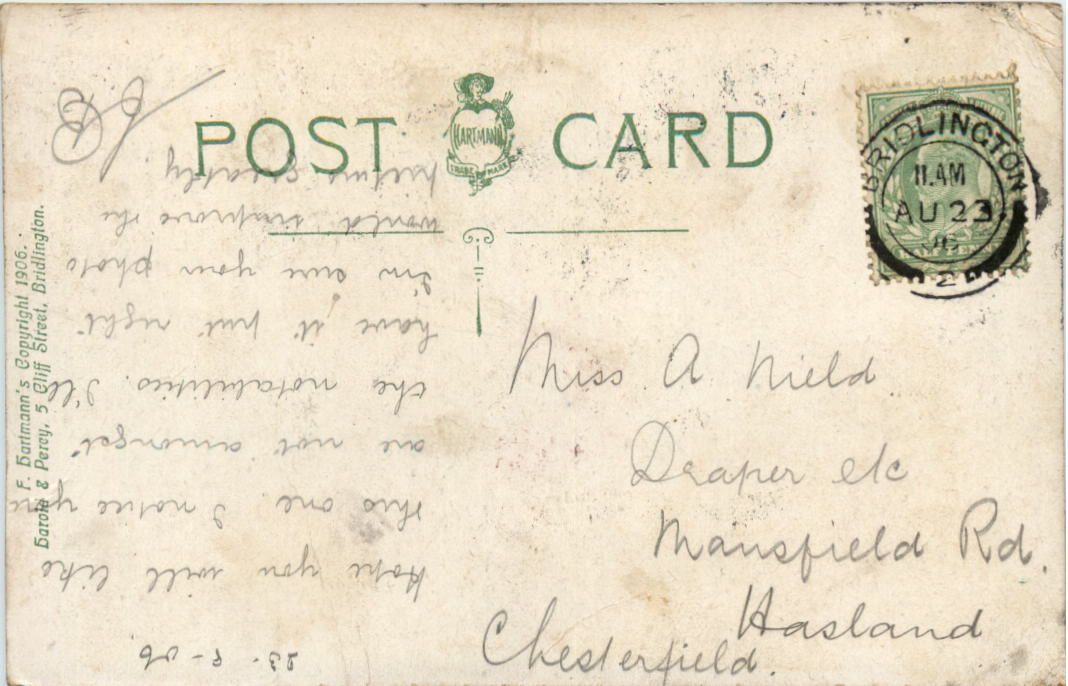 POST CARD
HARTMANN
TRADE MARK
F. Hartmann's Copyright 1906.
Harold & Percy, 5 Cliff Street, Bridlington.
BRIDLINGTON
11.AM
AU 23
06
2
Miss A Nield
Draper etc
Mansfield Rd.
Hasland
Chesterfield.
23-8-06
Hope you will like
this one. I notice you
are not amongst
the notabilities. I'll
have it put right
I'm sure your photo
would improve the
picture greatly